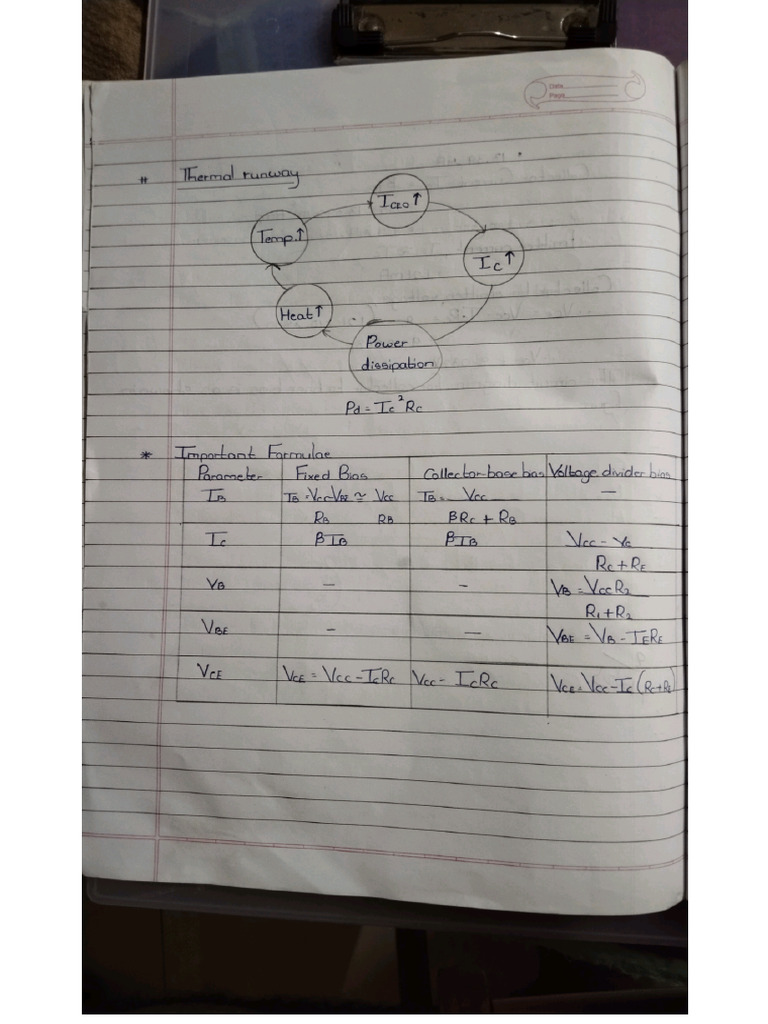 Date
Page
# Thermal runway
ICEO ↑
Temp.↑
IC ↑
Heat ↑
Power
dissipation
Pd = Ic²Rc
* Important Formulae
Parameter Fixed Bias Collector-base bias Voltage divider bias
IB IB = Vcc-VBE ≃ Vcc IB = Vcc —
RB RB βRc + RB
Ic βIB βIB Vcc - Vc
Rc + RE
VB - - VB = VccR2
R1 + R2
VBE - — VBE = VB - IERE
VCE VCE = Vcc - IcRc Vcc - IcRc VCE = Vcc - Ic(Rc+RE)